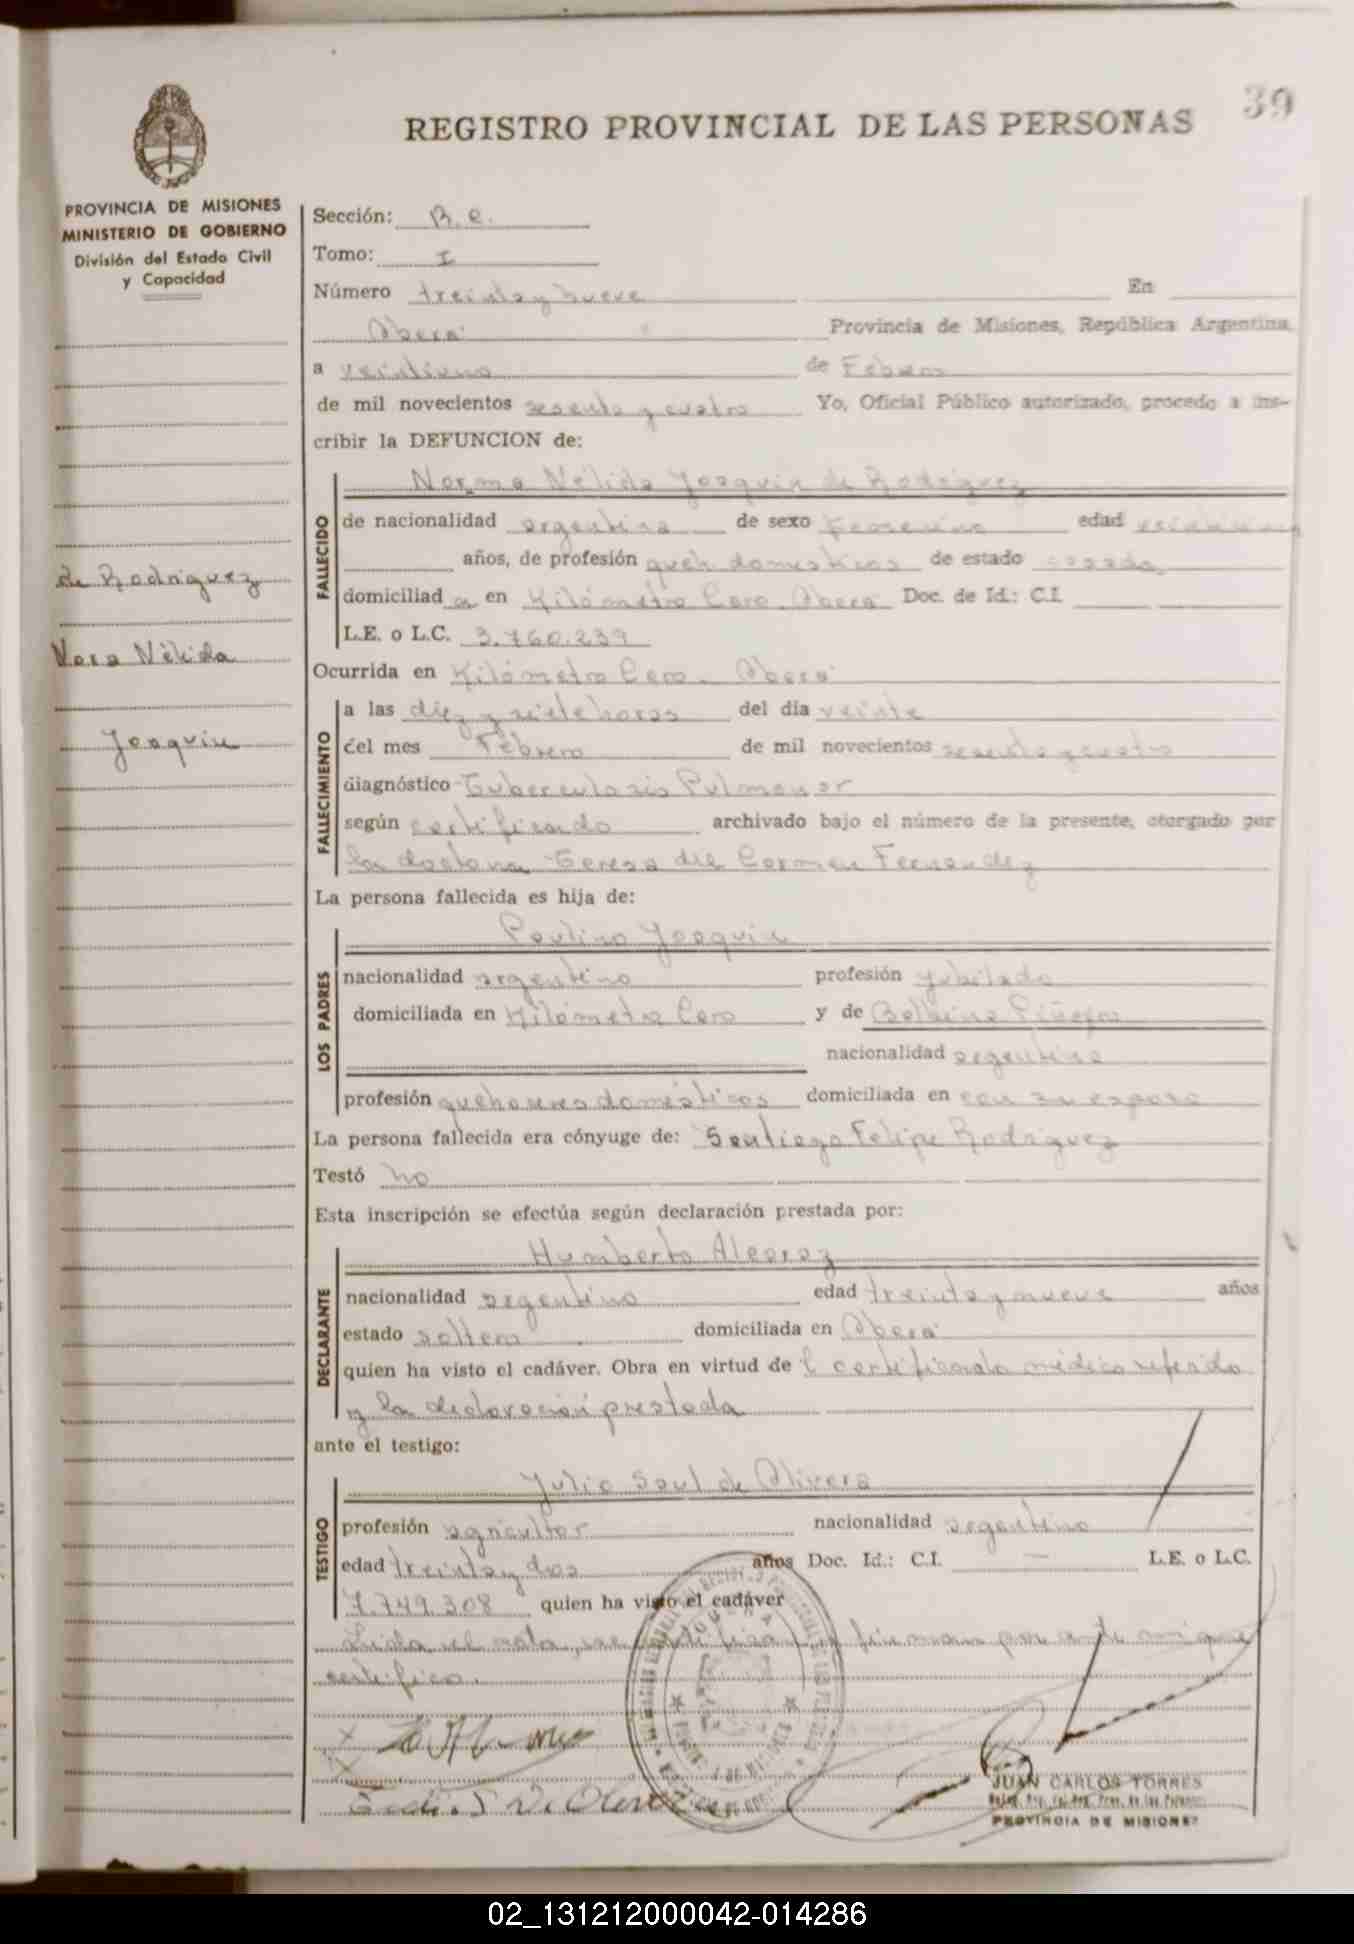 39
REGISTRO PROVINCIAL DE LAS PERSONAS
PROVINCIA DE MISIONES
MINISTERIO DE GOBIERNO
División del Estado Civil
y Capacidad
de Rodriguez
Nélida
Joaquin
Sección: R.e.
Tomo: I
Número treinta y nueve En
Oberá Provincia de Misiones, República Argentina,
a veintiuno de Febrero
de mil novecientos sesenta y cuatro Yo, Oficial Público autorizado, procedo a ins-
cribir la DEFUNCION de:
FALLECIDO
Norma Nélida Joaquin de Rodriguez
de nacionalidad argentina de sexo femenino edad
años, de profesión queh. domesticos de estado casada
domiciliad a en Kilómetro Cero. Oberá Doc. de Id.: C.I.
L.E. o L.C. 3.760.239
Ocurrida en Kilómetro Cero. Oberá
FALLECIMIENTO
a las diez y siete horas del día veinte
del mes Febrero de mil novecientos sesenta y cuatro
diagnóstico Tuberculosis Pulmonar
según certificado archivado bajo el número de la presente, otorgado por
la doctora Teresa del Carmen Fernandez
La persona fallecida es hija de:
LOS PADRES
Paulino Joaquin
nacionalidad argentino profesión jubilado
domiciliada en Kilómetro Cero y de Balbina Piñeyro
nacionalidad argentina
profesión quehaceres domésticos domiciliada en con su esposo
La persona fallecida era cónyuge de: Santiago Felipe Rodriguez
Testó no
Esta inscripción se efectúa según declaración prestada por:
DECLARANTE
Humberto Alvarez
nacionalidad argentino edad treinta y nueve años
estado soltero domiciliada en Oberá
quien ha visto el cadáver. Obra en virtud de l certificado médico referido
y la declaración prestada
ante el testigo:
TESTIGO
Julio Saul de Olivera
profesión agricultor nacionalidad argentino
edad treinta y dos años Doc. Id.: C.I. — L.E. o L.C.
7.749.308 quien ha visto el cadáver
Leida el acta, se ratifican y firman por ante mi que
certifico.
JUAN CARLOS TORRES
PROVINCIA DE MISIONES
02_131212000042-014286